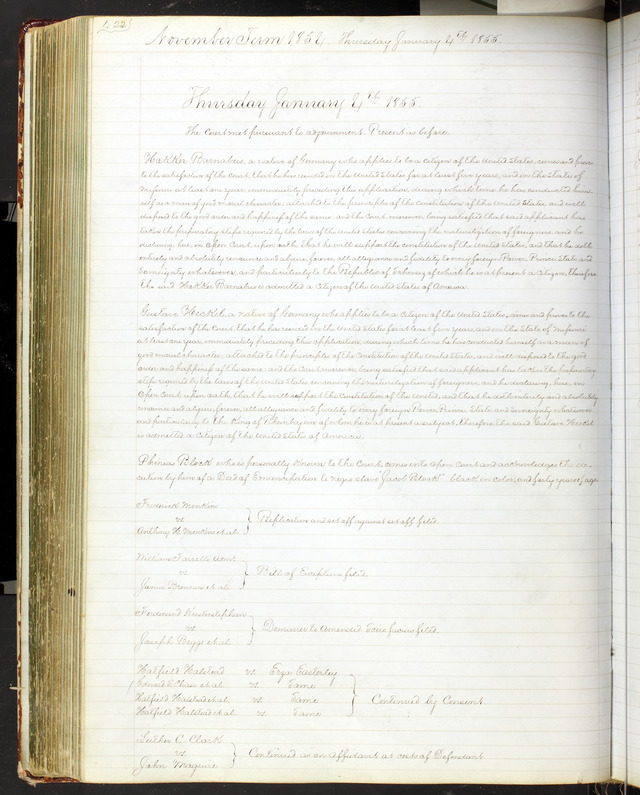 422
November Term 1854. Thursday January 4th 1855.
Thursday January 4th 1855.
The Court met pursuant to adjournment. Present as before.
Hakker Barnabas, a native of Germany who applies to be a citizen of the United States, comes and proves
to the satisfaction of the court that he has resided in the United States for at least five years, and in the State of
Missouri at least one year, immediately preceding this application, during which time he has conducted him-
self as a man of good moral character, attached to the principles of the Constitution of the United States, and well
disposed to the good order and happiness of the same. and the Court moreover being satisfied that said applicant has
taken the preparatory steps required by the laws of the United States concerning the naturalization of foreigners, and he
declaring, here, in Open Court, upon oath, that he will support the constitution of the United States, and that he doth
entirely and absolutely renounce and abjure, forever, all allegiance and fidelity to every foreign Power, Prince State and
Sovereignty whatsoever, and particularly to the Republic of of which he is at present a Citizen, therefore
the said Hakker Barnabas is admitted a Citizen of the United States of America.
Gustave Heckel, a native of Germany who applies to be a Citizen of the United States, comes and proves to the
satisfaction of the Court that he has resided in the United States for at least five years, and in the State of Missouri
at least one year, immediately preceding this application, during which time he has conducted himself as a man of
good moral character, attached to the principles of the Constitution of the United States, and well disposed to the good
order and happiness of the same. and the Court moreover being satisfied that said applicant has taken the preparatory
steps required by the laws of the United States concerning the naturalization of foreigners, and he declaring, here, in
Open Court upon oath, that he will support the Constitution of the United, and that he doth entirely and absolutely
renounce and abjure, forever, all allegiance and fidelity to every foreign Power, Prince, State and Sovereignty whatsoever
and particularly to the King of of whom he is at present a subject, therefore the said Gustave Heckel
is admitted a Citizen of the United States of America.
Phineas Block who is personally known to the Court, comes into Open Court and acknowledges the exe-
cution by him of a Deed of Emancipation to negro slave "Jacob Block" black in color, and forty years of age.
Frederick Menkins
vs.
Anthony H. Menkins et al.
Replication and set off against set off filed.
William
vs.
James et al
Bill of Exceptions filed.
Ferdinand
vs.
Joseph Beggs et al.
Demurrer to Amended Scire facias filed.
Hatfield Halsted vs. Ezra Easterley
Edward E Chase et al. vs. Same
Hatfield Halsted et al. vs. Same
Hatfield Halsted et al. vs. Same
Continued by Consent.
Luther C. Clark
vs.
John Maguire
Continued as on Affidavit at costs of Defendant.